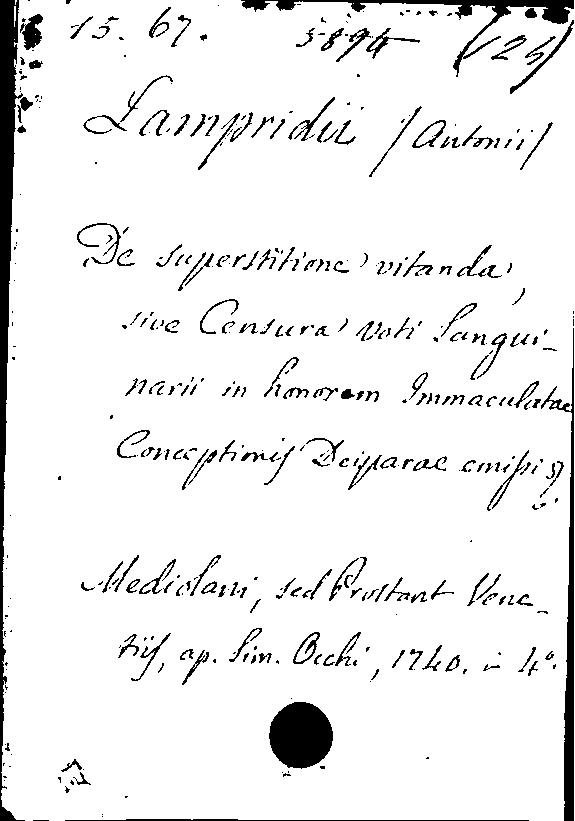 15. 67. 5894 (25)
Lampridii /Antonii/
De superstitione vitanda,
sive Censura voti Sangui-
narii in honorem Immaculatae
Conceptionis Deiparae emissi
Mediolani, sed Prostant Vene-
tiis, ap. Sim. Occhi, 1740. in 4°.